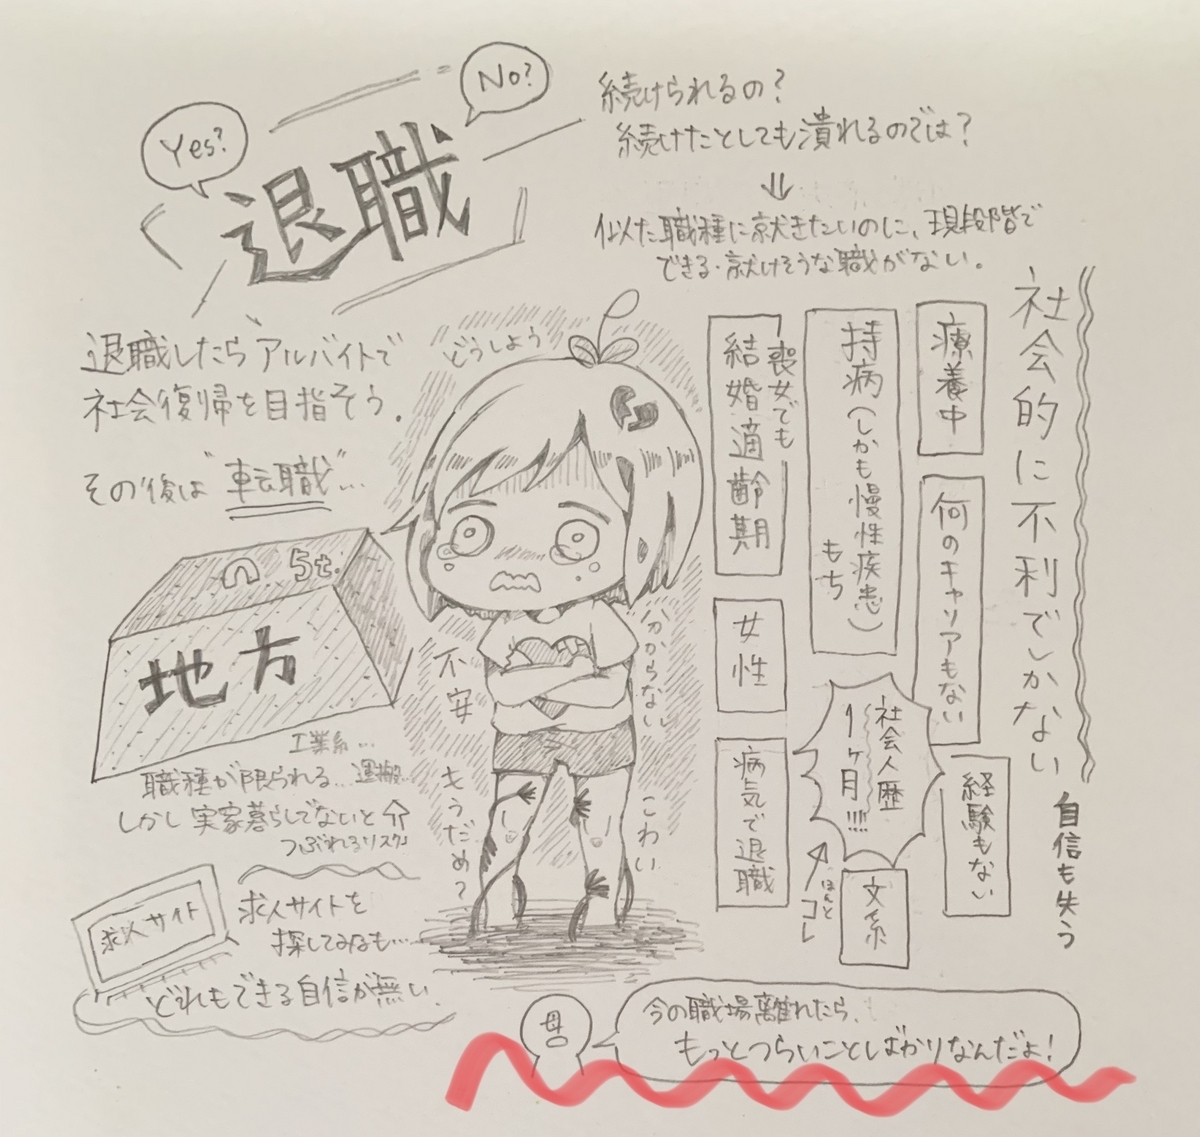 Yes?
No?
退職
続けられるの？
続けたとしても潰れるのでは？
⇓
似た職種に就きたいのに、現段階で
できる・就けそうな職がない。
退職したらアルバイトで
社会復帰を目指そう。
その後は"転職"…
社会的に不利でしかない
自信も失う
療養中
何のキャリアもない
経験もない
持病(しかも慢性疾患)
もち
社会人歴
1ヶ月!!!!
ほんとコレ
文系
喪女でも
結婚適齢期
女性
病気で退職
どうしよう
不安
もうだめ？
わからない
こわい
5t.
地方
工業系…
職種が限られる…運搬…
しかし実家暮らしでないと
つぶれるリスク
求人サイト
求人サイトを
探してみるも…
どれもできる自信が無い、
母
今の職場離れたら、
もっとつらいことばかりなんだよ！